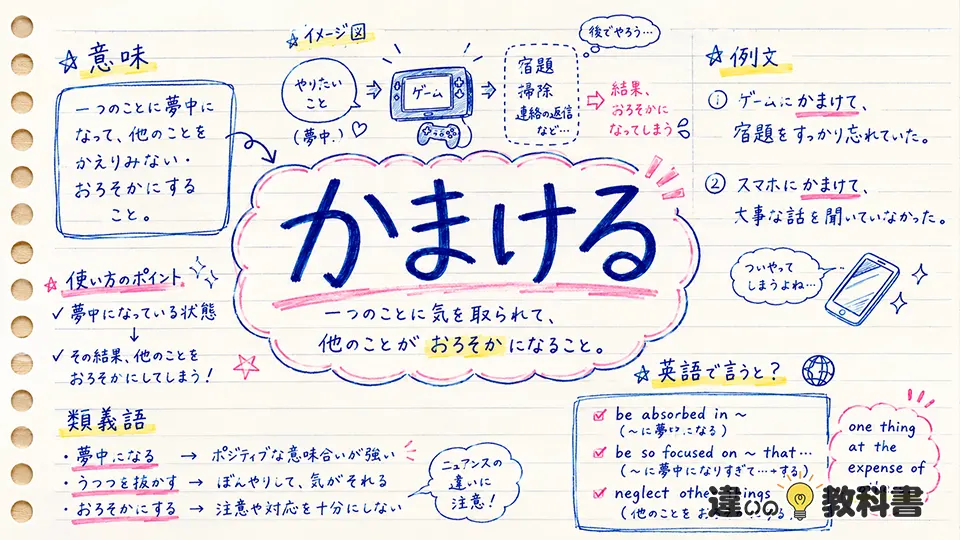 意味
一つのことに夢中に
なって、他のことを
かえりみない・
おろそかにする
こと。
イメージ図
やりたい
こと
(夢中)
ゲーム
後でやろう…
宿題
掃除
連絡の返信
など…
結果、
おろそかに
なってしまう
例文
① ゲームにかまけて、
宿題をすっかり忘れていた。
② スマホにかまけて、
大事な話を聞いていなかった。
ついやって
しまうよね…
かまける
一つのことに気を取られて、
他のことが おろそか になること。
使い方のポイント
✓ 夢中になっている状態
↓
✓ その結果、他のことを
おろそかにしてしまう!
類義語
・夢中になる → ポジティブな意味合いが強い
・うつつを抜かす → ぼんやりして、気がそれる
・おろそかにする → 注意や対応を十分にしない
ニュアンスの
違いに
注意!
英語で言うと?
be absorbed in ~
(~に夢中になる)
be so focused on ~ that…
(~に夢中になりすぎて…する)
neglect other things
(他のことを
one thing
at the
expense of
違いの教科書